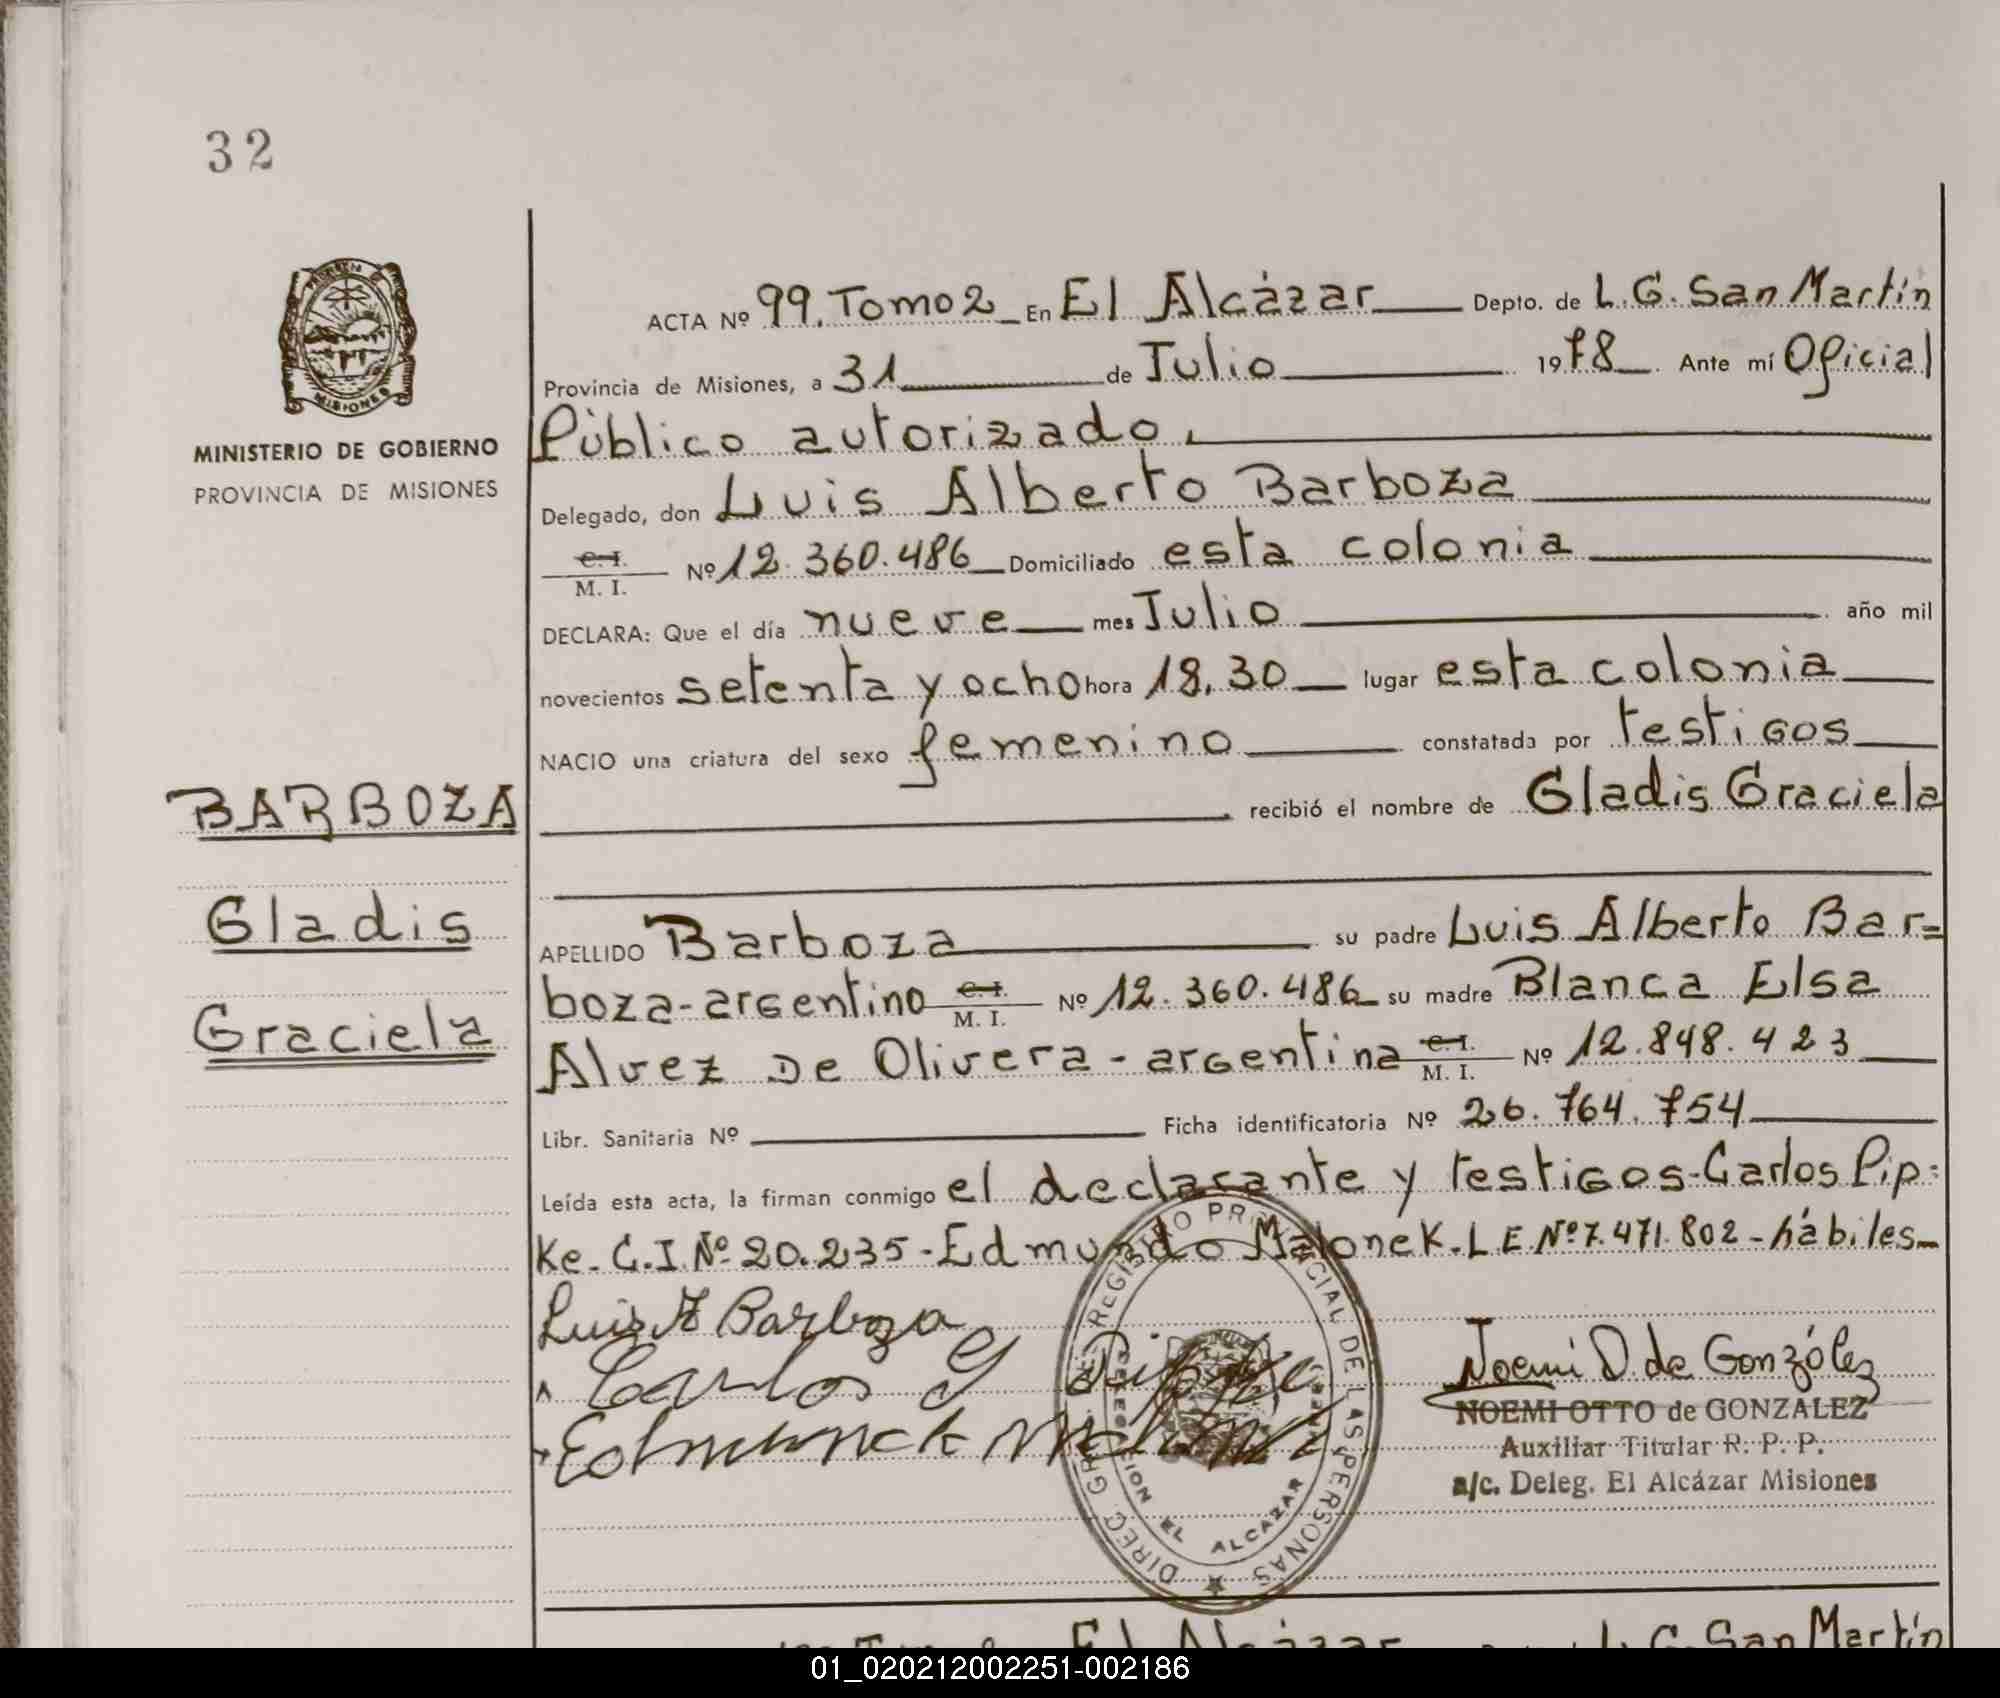 32
PROVINCIA DE
MISIONES
MINISTERIO DE GOBIERNO
PROVINCIA DE MISIONES
BARBOZA
Gladis
Graciela
ACTA Nº 99. Tomo 2 En El Alcázar Depto. de L. G. San Martín
Provincia de Misiones, a 31 de Julio 1978 Ante mí Oficial
Público autorizado.
Delegado, don Luis Alberto Barboza
C. I.
M. I. Nº 12.360.486 Domiciliado esta colonia
DECLARA: Que el día nueve mes Julio año mil
novecientos setenta y ocho hora 18,30 lugar esta colonia
NACIO una criatura del sexo femenino constatada por testigos
recibió el nombre de Gladis Graciela
APELLIDO Barboza su padre Luis Alberto Bar=
boza-argentino C. I. M. I. Nº 12.360.486 su madre Blanca Elsa
Alvez De Olivera - argentina C. I. M. I. Nº 12.848.423
Libr. Sanitaria Nº Ficha identificatoria Nº 26.764.754
Leída esta acta, la firman conmigo el declarante y testigos-Carlos Pip=
Ke- C.I. Nº 20.235-Edmundo Malonek. L E Nº 7.471.802-hábiles-
Luis A Barboza
Carlos
Noemi O. de Gonzólez
NOEMI OTTO de GONZALEZ
Auxiliar Titular R. P. P.
a/c. Deleg. El Alcázar Misiones
DIREC. GRAL. DEL REGISTRO PROVINCIAL DE LAS PERSONAS
EL ALCAZAR
El Alcázar L. G. San Martín
01_020212002251-002186